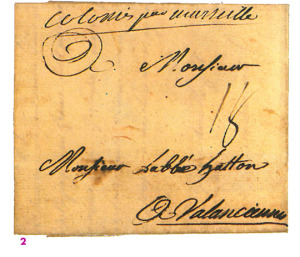 colonies par marseille
Monsieur
18
Monsieur Labbé hatton
A Valancienne
2